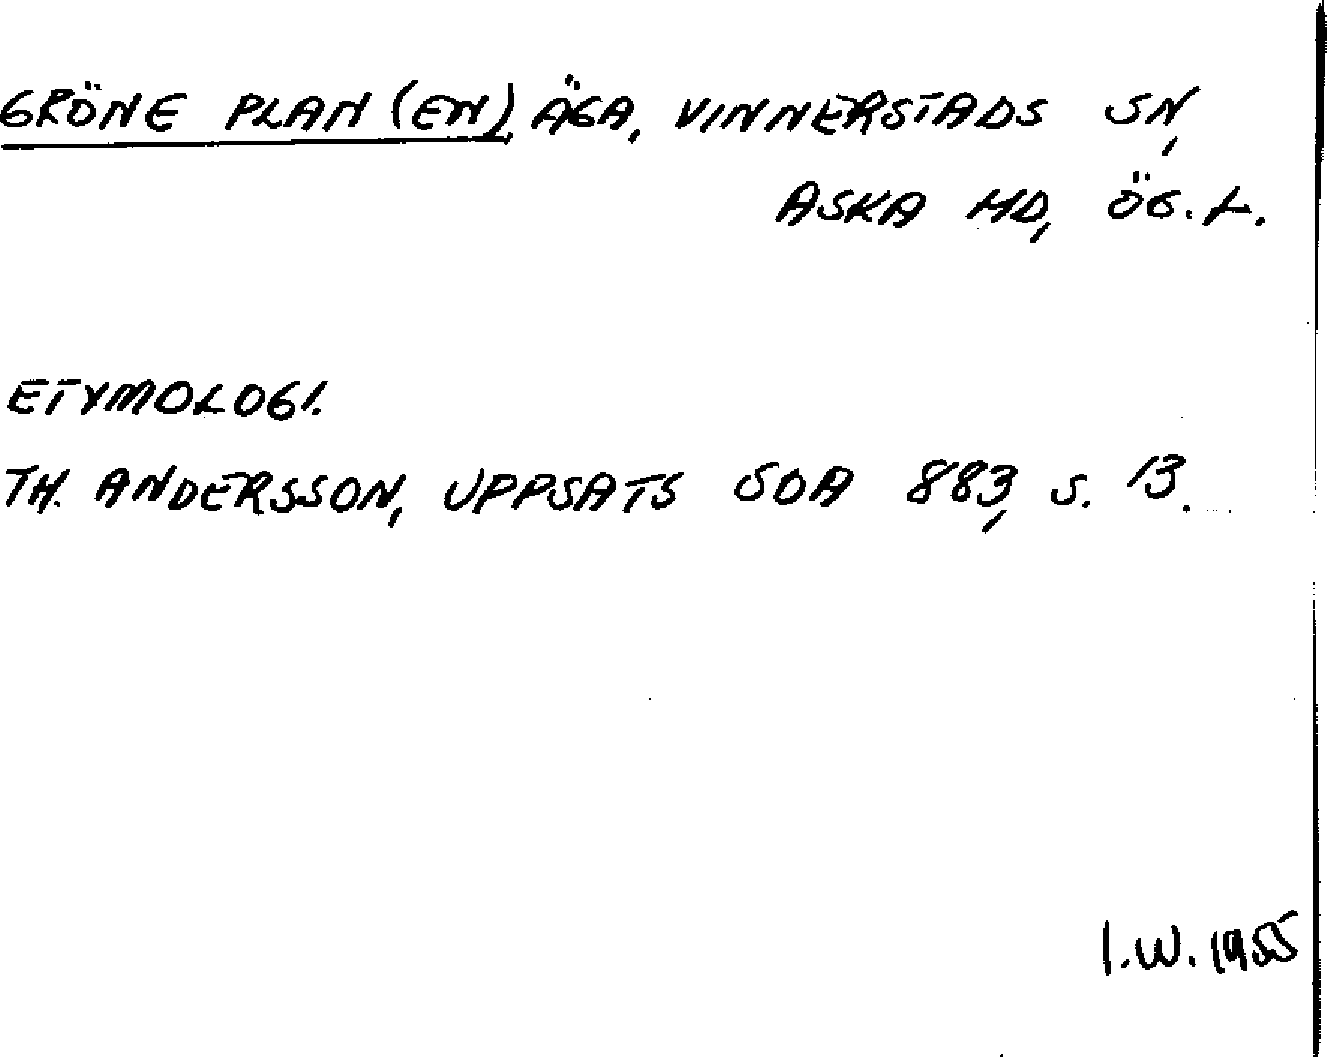 GRÖNE PLAN (EN), ÄGA, VINNERSTADS SN,
ASKA HD, ÖG. L.
ETYMOLOGI.
TH. ANDERSSON, UPPSATS SOA 883, S. 13.
I.W. 1955